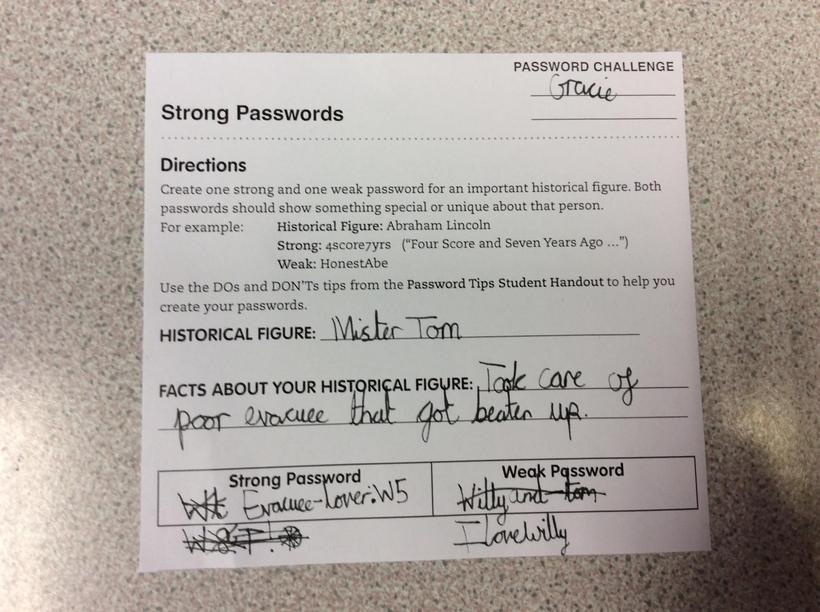 PASSWORD CHALLENGE
Gracie
Strong Passwords
Directions
Create one strong and one weak password for an important historical figure. Both
passwords should show something special or unique about that person.
For example: Historical Figure: Abraham Lincoln
Strong: 4score7yrs ("Four Score and Seven Years Ago ...")
Weak: HonestAbe
Use the DOs and DON'Ts tips from the Password Tips Student Handout to help you
create your passwords.
HISTORICAL FIGURE: Mister Tom
FACTS ABOUT YOUR HISTORICAL FIGURE: Took care of
poor evacuee that got beaten up.
Strong Password Weak Password
Evacuee-Lover:W5 Willy and tom
I love willy